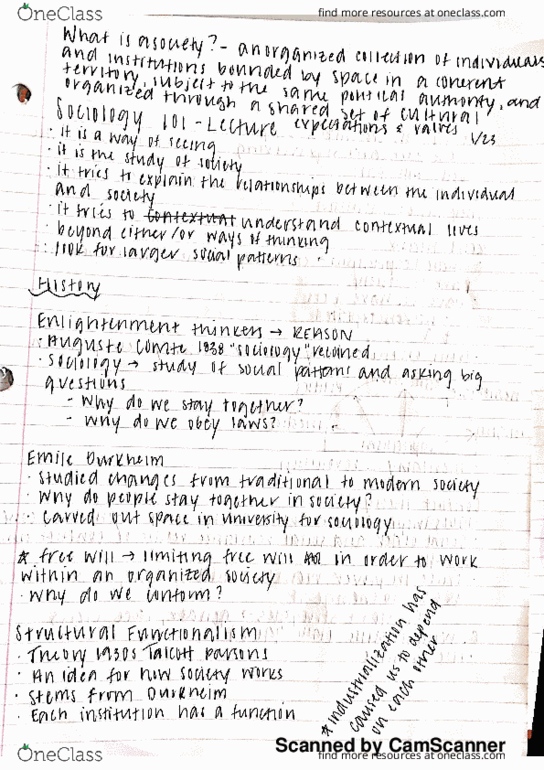 OneClass
find more resources at oneclass.com
What is a society? - an organized collection of individuals
and institutions bounded by space in a coherent
territory, subject to the same political authority, and
organized through a shared set of cultural
expectations & values
Sociology 101 - Lecture 1/23
· it is a way of seeing
· it is the study of society
· it tries to explain the relationships between the individual
and society
· it tries to contextual understand contextual lives
· beyond either/or ways of thinking
· look for larger social patterns
History
Enlightenment thinkers → REASON
· Auguste Comte 1838 "sociology"
· Sociology → study of social patterns and asking big
questions
- Why do we stay together?
- Why do we obey laws?
Emile Durkheim
· Studied changes from traditional to modern society
· Why do people stay together in society?
· Carved out space in university for sociology
* free will → limiting free will in order to work
within an organized society
· Why do we conform?
Structural Functionalism
· Theory 1930s Talcott Parsons
· An idea for how society works
· Stems from Durkheim
· Each institution has a function
* industrialization has
caused us to depend
on each other
Scanned by CamScanner
OneClass
find more resources at oneclass.com